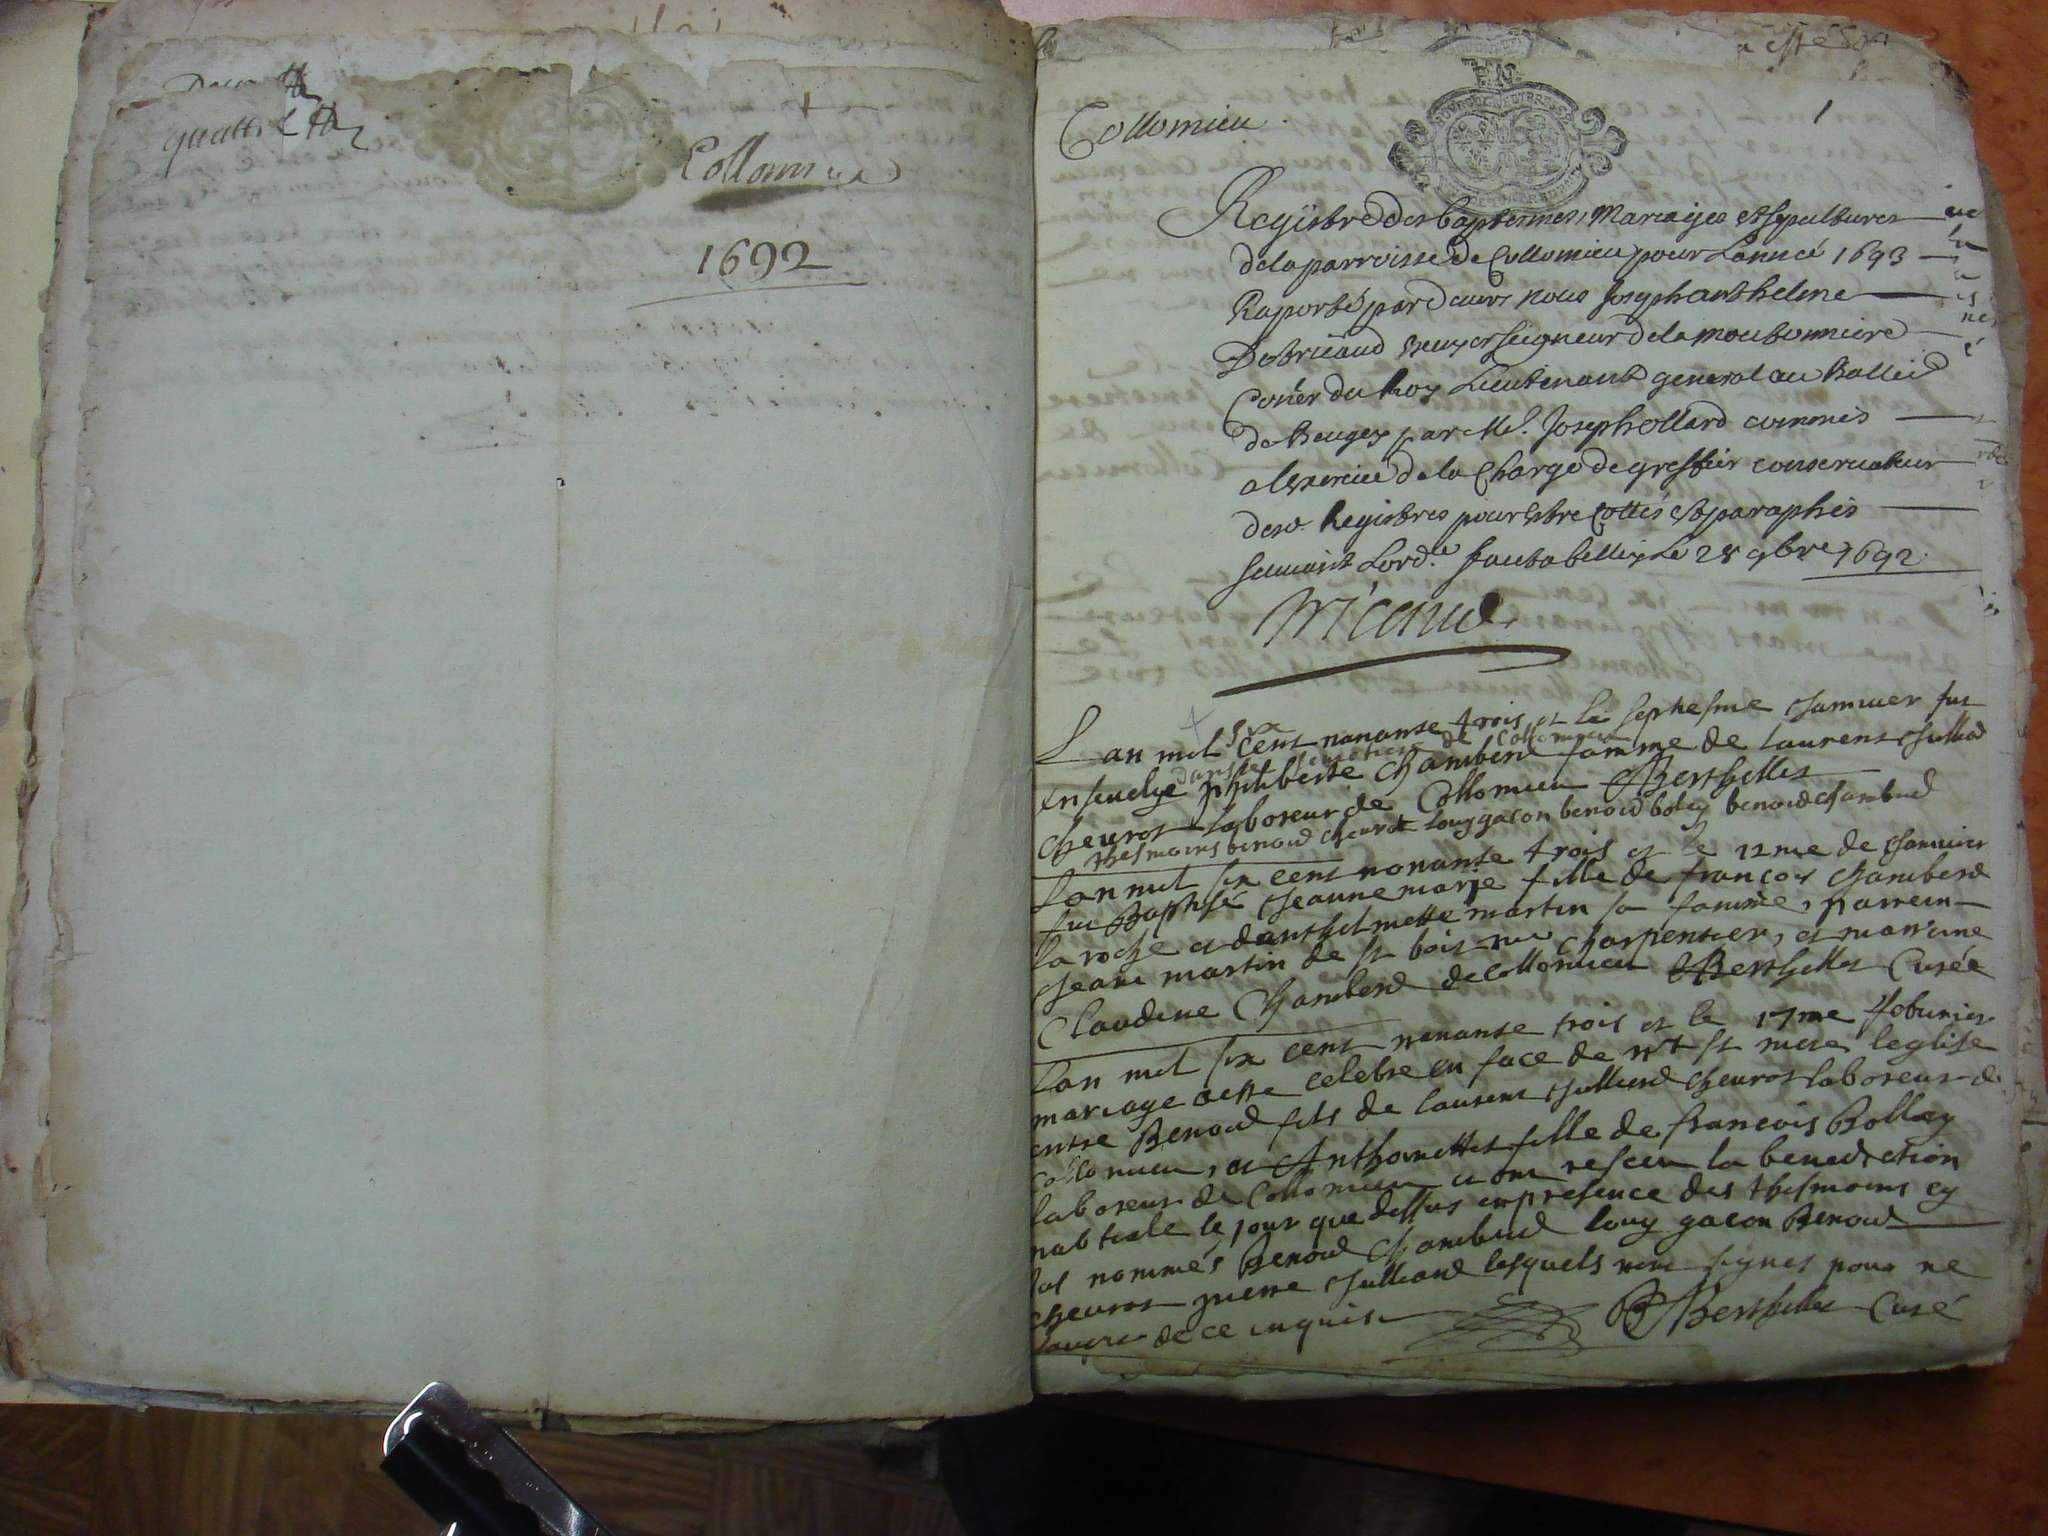 quatt
Collomieu
1692
a esté
1
Collomieu
Registre des baptesmes, Mariages et sepultures
de la parroisse de Collomieu pour Lanneé 1693
Raporté pardeuers nous Joseph anthelme
seigneur de la moutonniere
Coner du Roy Lieutenant general au Balliad
de beugey par Me. Joseph ollard commis
a lexercice de la Charge de greffier conseruateur
desd. Registres pour estre Cottés et paraphés
suiuant Lord.ce fait a belley Le 28 9bre 1692
Lan mil six cent nonante trois et le septiesme Januier fut
dans le semetiere de Collomieu
enseuelye philiberte Chamberd famme de laurens Julliard
cheurot laboreur de Collomieu Berthellet
thesmoins benoid cheurot louy gacon benoid bolley benoid chamberd
Lan mil six cent nonante trois et le 12me de Januier
fut Baptisé Jeanne marie fille de francois chamberd
la roche et danthelmette martin sa famme, parrein
Jean martin de st bois me charpentier, et marreine
Claudine Chamberd de Collomieu Berthellet Curée
Lan mil six cent nonante trois et le 17me feburier
mariage a esté celebré en face de nre st mere leglise
entre Benoid fils de laurens Julliard cheurot laboreur de
Collomieu, et Anthoinette fille de francois Bolley
laboreur de Collomieu et ont resceu la benediction
nubtiale le jour que dessus en presence des thesmoins cy
bas nommés Benoid Chamberd louy gacon Benoid
cheurot pierre Julliard lesquels nont signés pour ne
scauoir de ce enquis B Berthellet Curé